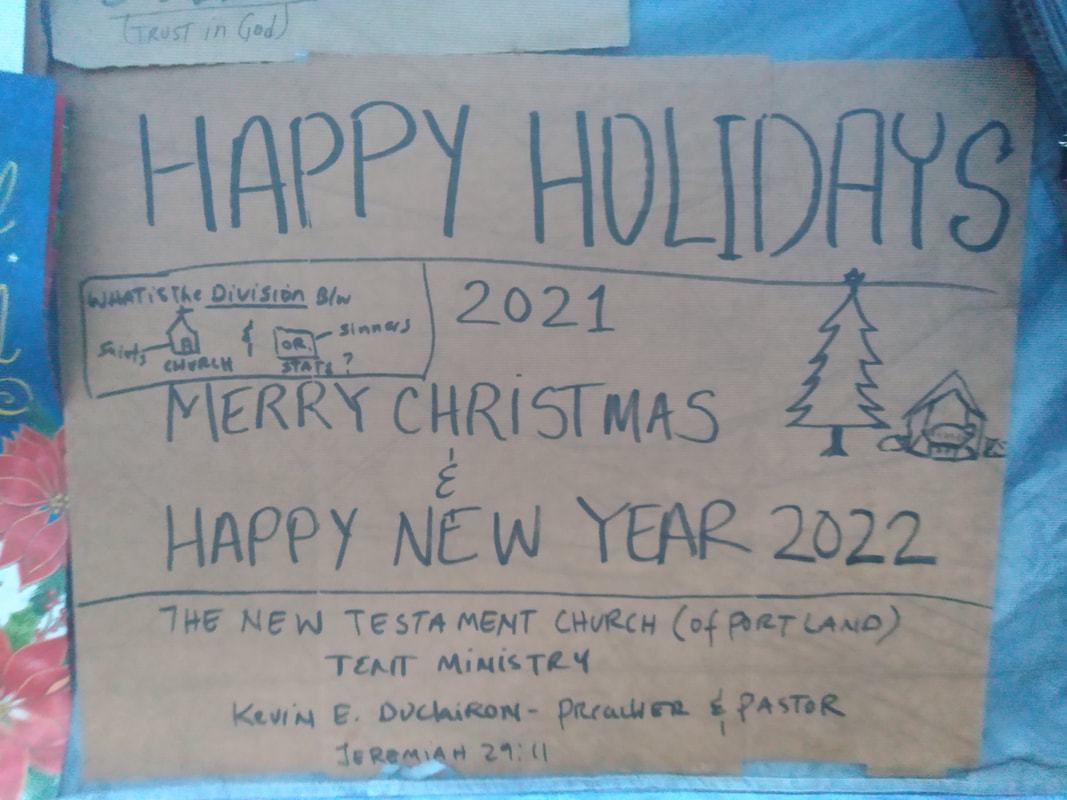 (TRUST in God)
HAPPY HOLIDAYS
WHAT is The Division B/w
Saints
CHURCH
&
OR.
STATE?
Sinners
2021
MERRY CHRISTMAS
&
HAPPY NEW YEAR 2022
THE NEW TESTAMENT CHURCH (of PORTLAND)
TENT MINISTRY
Kevin E. DUClAiRON - PREACHER & PASTOR
JEREMIAH 29:11